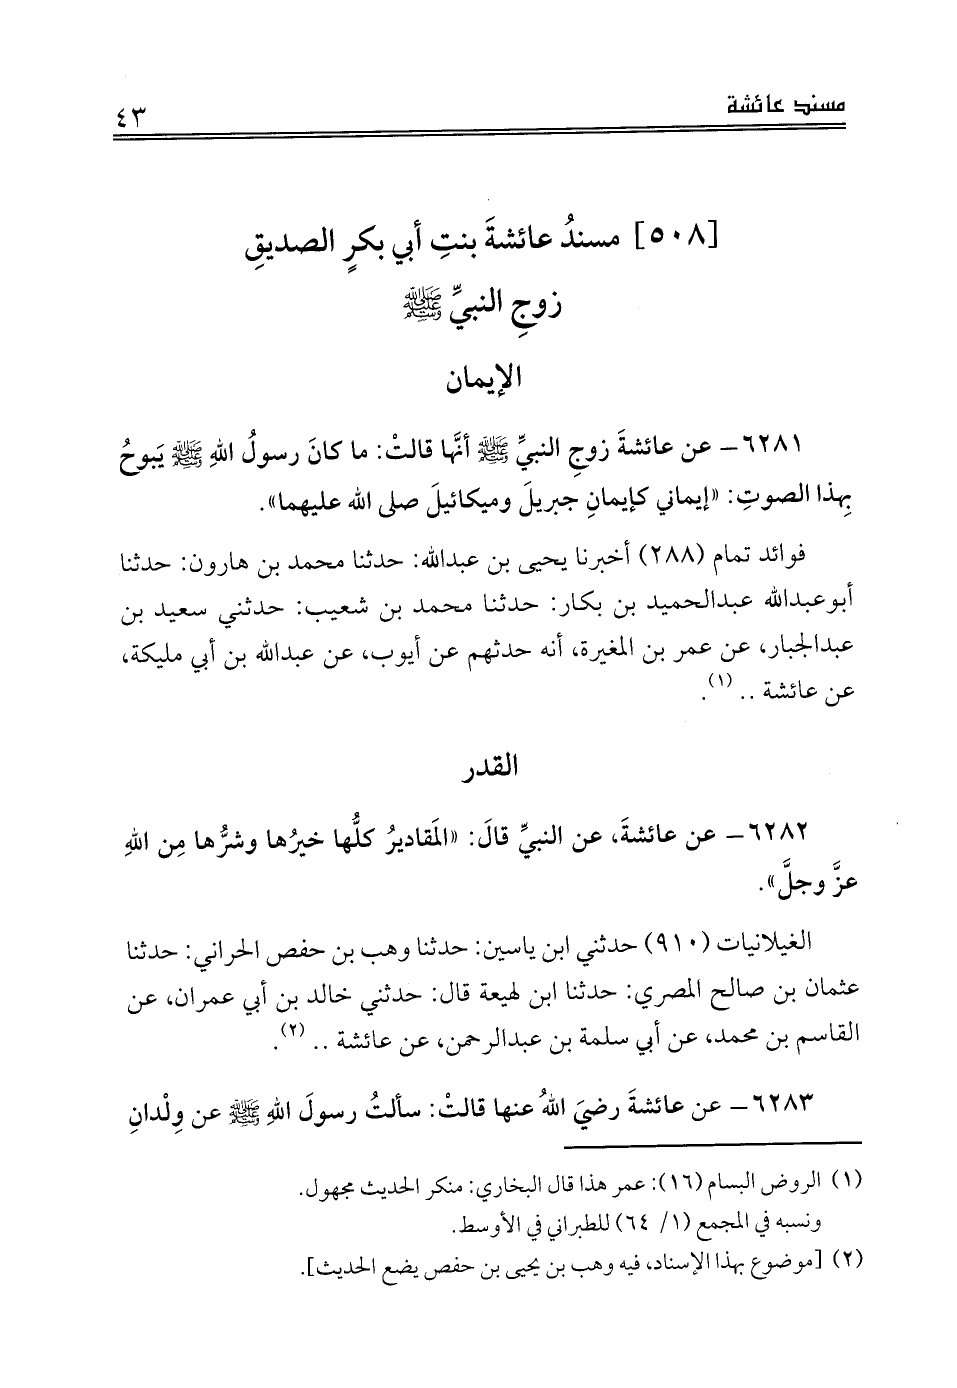 مسند عائشة
٤٣
[٥٠٨] مسندُ عائشةَ بنتِ أبي بكرٍ الصديقِ
زوجِ النبيِّ ﷺ
الإيمان
٦٢٨١ – عن عائشةَ زوجِ النبيِّ ﷺ أنَّها قالتْ: ما كانَ رسولُ اللهِ ﷺ يَبوحُ
بِهذا الصوتِ: «إيماني كإيمانِ جبريلَ وميكائيلَ صلى الله عليهما».
فوائد تمام (٢٨٨) أخبرنا يحيى بن عبدالله: حدثنا محمد بن هارون: حدثنا
أبوعبدالله عبدالحميد بن بكار: حدثنا محمد بن شعيب: حدثني سعيد بن
عبدالجبار، عن عمر بن المغيرة، أنه حدثهم عن أيوب، عن عبدالله بن أبي مليكة،
عن عائشة .. (١).
القدر
٦٢٨٢ – عن عائشةَ، عن النبيِّ قالَ: «المَقاديرُ كلُّها خيرُها وشرُّها مِن اللهِ
عزَّ وجلَّ».
الغيلانيات (٩١٠) حدثني ابن ياسين: حدثنا وهب بن حفص الحراني: حدثنا
عثمان بن صالح المصري: حدثنا ابن لهيعة قال: حدثني خالد بن أبي عمران، عن
القاسم بن محمد، عن أبي سلمة بن عبدالرحمن، عن عائشة .. (٢).
٦٢٨٣ – عن عائشةَ رضيَ اللهُ عنها قالتْ: سألتُ رسولَ اللهِ ﷺ عن وِلْدانِ
(١) الروض البسام (١٦): عمر هذا قال البخاري: منكر الحديث مجهول.
ونسبه في المجمع (١/ ٦٤) للطبراني في الأوسط.
(٢) [موضوع بهذا الإسناد، فيه وهب بن يحيى بن حفص يضع الحديث].